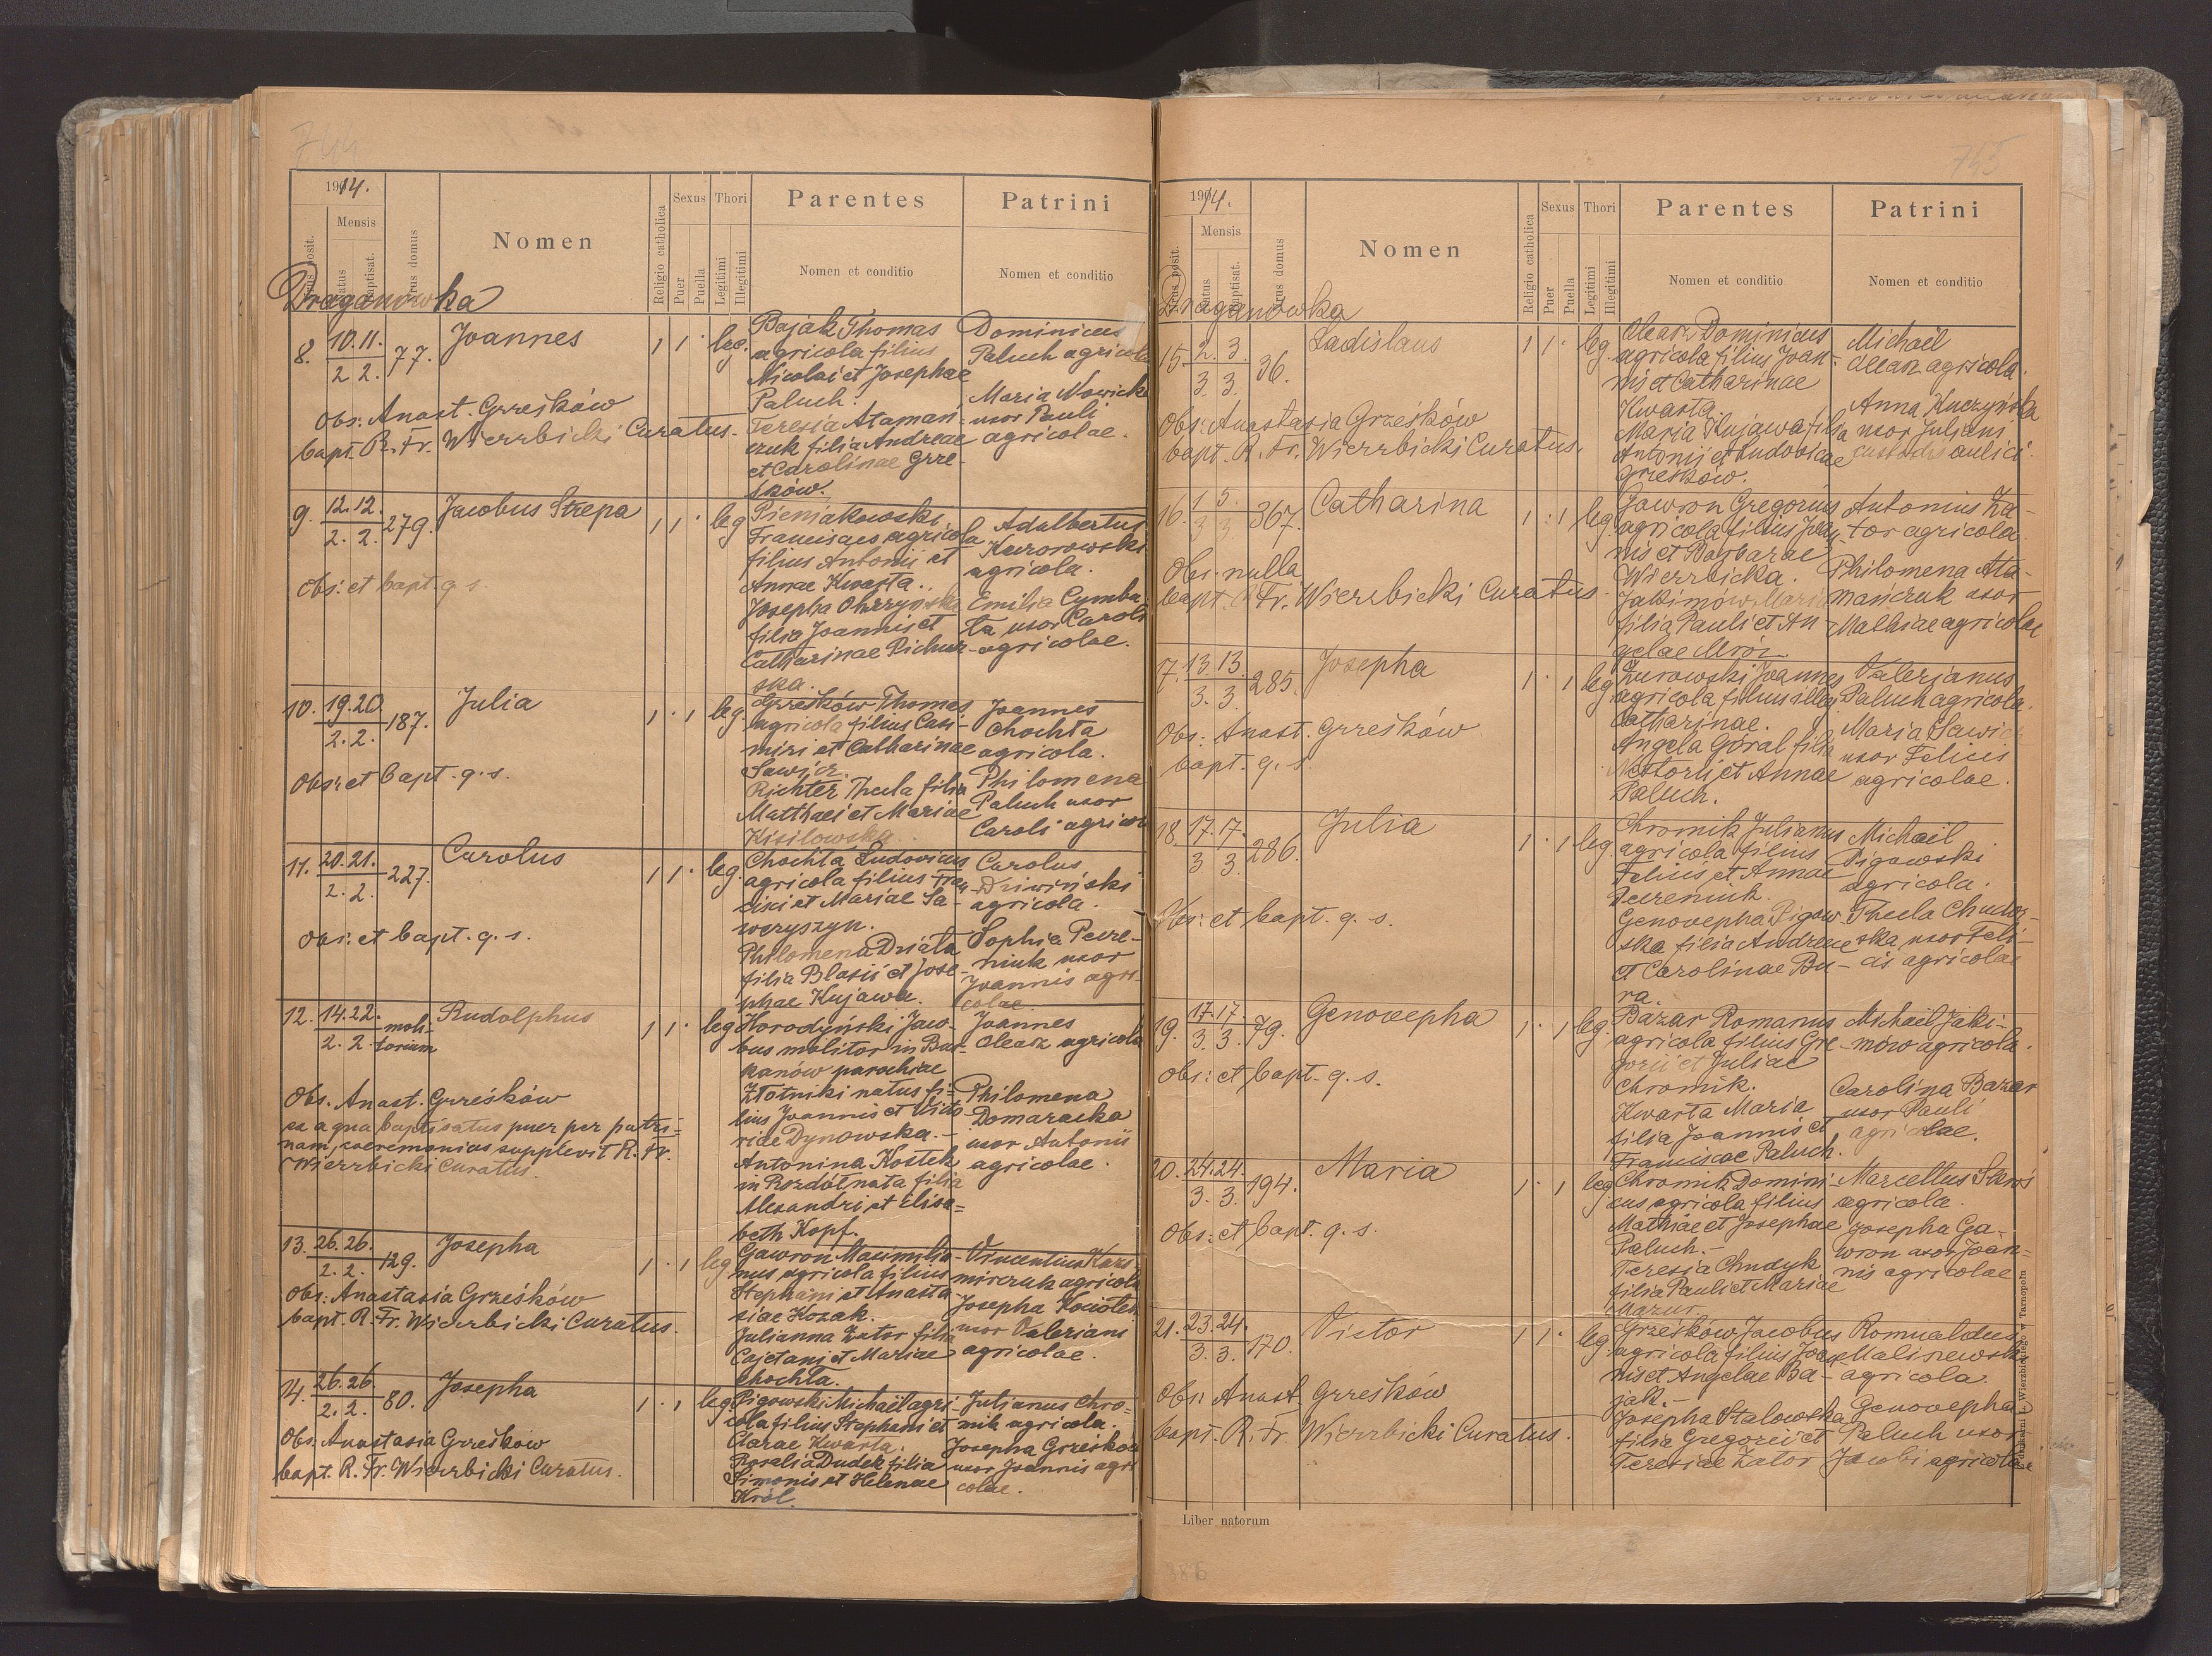 744
1914.
Mensis
Nrus posit.
Natus
Baptisat.
Nrus domus
Nomen
Religio catholica
Sexus
Puer
Puella
Thori
Legitimi
Illegitimi
Parentes
Nomen et conditio
Patrini
Nomen et conditio
Draganówka
8. 10. 11. 77. Joannes 1 1 · leg.
2 2.
Obs: Anast. Grześków
bapt. R. Fr. Wierzbicki Curatus.
Bajak Thomas
agricola filius
Nicolai et Josephae
Paluch.
Teresia Ataman-
czuk filia Andreae
et Carolinae Grze-
śków.
Dominicus
Paluch agricola
Maria Nowicka
uxor Pauli
agricolae.
9. 12. 12. 279. Jacobus Strepa 1 1 · leg
2. 2.
Obs: et bapt. q. s.
Pieniakowski
Franciscus agricola
filius Antonii et
Annae Kwarta.
Josepha Obrzyńska
filia Joannis et
Catharinae Pichur-
ska.
Adalbertus
Kurorowski
agricola.
Emilia Cymba-
ła uxor Caroli
agricolae.
10. 19. 20 187. Julia 1 · 1 leg.
2. 2.
Obs: et bapt. q. s.
Grześków Thomas
agricola filius Casi-
miri et Catharinae
Sawicz.
Richter Thecla filia
Matthaei et Mariae
Kisilowska.
Joannes
Chochta
agricola.
Philomena
Paluch uxor
Caroli agricolae
11. 20. 21. 227. Carolus 1 1 · leg.
2. 2.
Obs: et bapt. q. s.
Chochta Ludovicus
agricola filius Fran-
cisci et Mariae Sa-
weryszyn.
Philomena Działa
filia Blasii et Jose-
phae Kujawa.
Carolus
Dziwiński
agricola.
Sophia Pecze-
niuk uxor
Joannis agri-
colae.
12. 14. 22. moli- Rudolphus 1 1 · leg
2. 2. torium
Obs. Anast. Grześków
ex aqua baptisatus puer per patri=
nam, caeremonias supplevit R. Fr.
Wierzbicki Curatus.
Horodyński Jaco-
bus molitor in Bur-
kanów parochiae
Złotniki natus fi=
lius Joannis et Victo-
riae Dynowska.-
Antonina Kostek
in Rozdół nata filia
Alexandri et Elisa=
beth Kopf.
Joannes
Olearz agricola
Philomena
Domaracka
uxor Antonii
agricolae.
13. 26. 26. 129. Josepha 1 · 1 leg
2. 2.
Obs: Anastasia Grześków
bapt. R. Fr. Wierzbicki Curatus.
Gawron Maximilia-
nus agricola filius
Stephani et Anasta-
siae Kozak.
Julianna Zator filia
Cajetani et Mariae
Chochta.
Vincentius Kazi-
mirczuk agricola
Josepha Kociołek
uxor Valeriani
agricolae.
14. 26. 26. 80. Josepha 1 · 1 leg
2. 2.
Obs: Anastasia Grześków
bapt. R. Fr. Wierzbicki Curatus.
Pigowski Michaël agri-
cola filius Stephani et
Clarae Kwarta.
Rosalia Dudek filia
Simonis et Helenae
Król.
Julianus Chro=
mik agricola.
Josepha Grześków
uxor Joannis agri-
colae.
745
1914.
Mensis
Nrus posit.
Natus
Baptisat.
Nrus domus
Nomen
Religio catholica
Sexus
Puer
Puella
Thori
Legitimi
Illegitimi
Parentes
Nomen et conditio
Patrini
Nomen et conditio
Draganówka
15. 2. 3. 36. Ladislaus 1 1 · leg.
3 3.
Obs: Anastasia Grześków
bapt. R. Fr. Wierzbicki Curatus.
Olearz Dominicus
agricola filius Joan-
nis et Catharinae
Kwarta.
Maria Kujawa filia
Antonij et Ludovicae
Grześków.
Michaël
Olearz agricola.
Anna Kuczyńska
uxor Juliani
custodis aulici.
16. 1 5. 367. Catharina 1 · 1 leg
3 3.
Obs. nulla
bapt. R. Fr. Wierzbicki Curatus
Gawron Gregorius
agricola filius Joan-
nis et Barbarae
Wierzbicka.
Jakimów Maria
filia Pauli et An-
gelae Mróz.
Antonius Za-
tor agricola
Philomena Ata-
mańczuk uxor
Mathiae agricolae
17. 13. 13. 285. Josepha 1 · 1 leg
3. 3.
Obs: Anast. Grześków.
bapt. q. s.
Żurowski Joannes
agricola filius illeg.
Catharinae.
Angela Góral filia
Nestorij et Annae
Paluch.
Valerianus
Paluch agricola.
Maria Sawic
uxor Felicis
agricolae.
18. 17. 17. 286. Julia 1 · 1 leg.
3 3.
Obs: et bapt. q. s.
Chromik Julianus
agricola filius
Felicis et Annae
Peczeniuk.
Genovepha Pigow-
ska filia Andreae
et Carolinae Bu-
ra.
Michaël
Pigowski
agricola.
Thecla Chudor-
ska, uxor Feli-
cis agricolae
19. 17. 17. 79. Genovepha 1 · 1 leg.
3. 3.
Obs: et bapt. q. s.
Bazar Romanus
agricola filius Gre-
gorii et Juliae
Chromik.
Kwarta Maria
filia Joannis et
Franciscae Paluch.
Michaël Jaki-
mów agricola.
Carolina Bazar
uxor Pauli
agricolae.
20. 24. 24. 194. Maria 1 · 1 leg
3. 3.
Obs: et bapt. q. s.
Chromik Domini-
cus agricola filius
Mathiae et Josephae
Paluch.-
Teresia Chudyk
filia Pauli et Mariae
Mazur.
Marcellus Sławi
agricola.
Josepha Ga-
wron uxor Joan=
nis agricolae
21. 23. 24. 170. Victor 1 1 · leg.
3. 3.
Obs: Anast. Grześków
bapt. R. Fr. Wierzbicki Curatus.
Grześków Jacobus
agricola filius Joan-
nis et Angelae Ba-
jak.-
Josepha Stalowska
filia Gregorii et
Teresiae Zator
Romualdus
Maliszewski
agricola.
Genovepha
Paluch uxor
Jacobi agricolae
Liber natorum